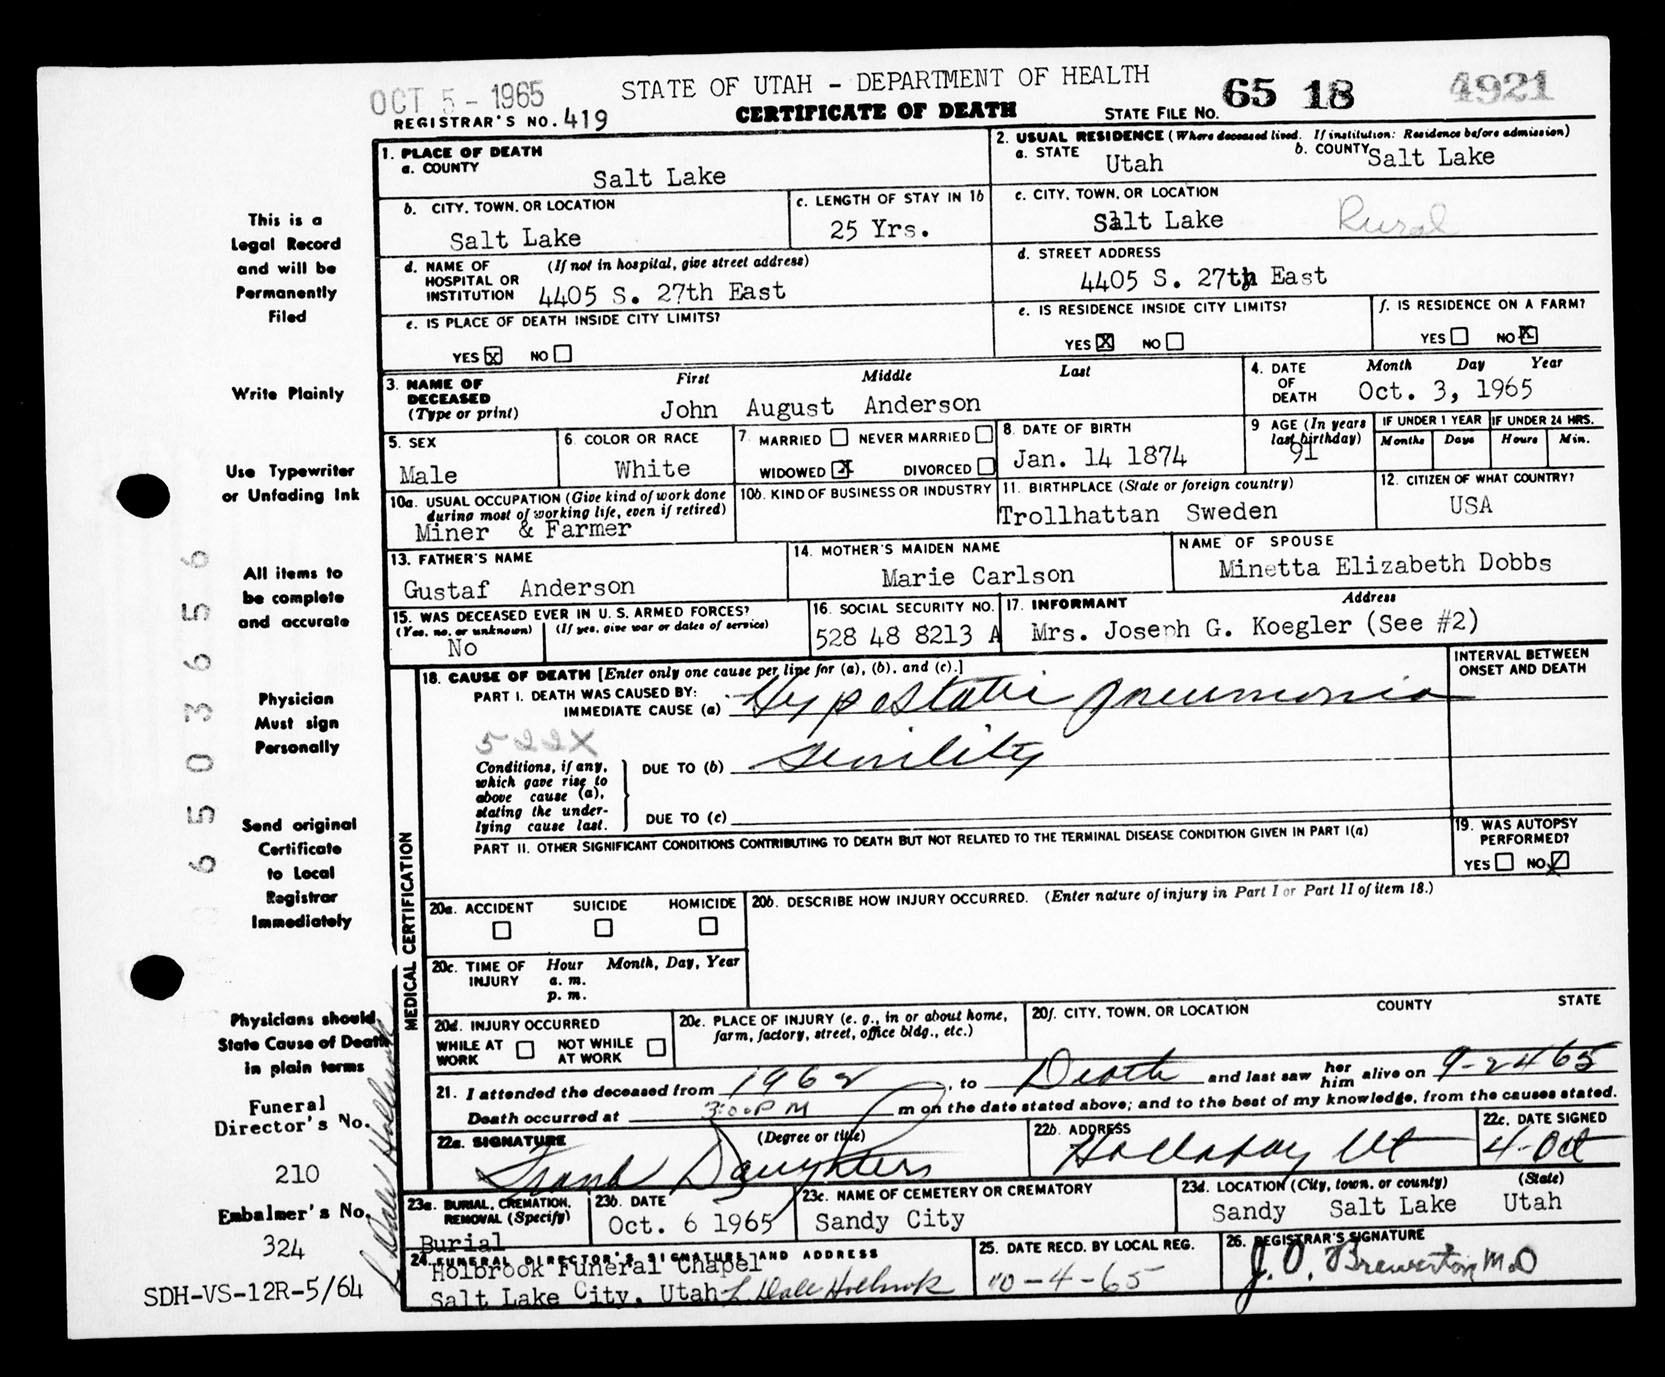 OCT 5 - 1965
STATE OF UTAH - DEPARTMENT OF HEALTH
REGISTRAR'S NO. 419
CERTIFICATE OF DEATH
STATE FILE NO. 65 18 4921
1. PLACE OF DEATH
a. COUNTY
Salt Lake
2. USUAL RESIDENCE (Where deceased lived. If institution: Residence before admission)
a. STATE Utah
b. COUNTY Salt Lake
b. CITY, TOWN, OR LOCATION
Salt Lake
c. LENGTH OF STAY IN 1b
25 Yrs.
c. CITY, TOWN, OR LOCATION
Salt Lake Rural
d. NAME OF HOSPITAL OR INSTITUTION (If not in hospital, give street address)
4405 S. 27th East
d. STREET ADDRESS
4405 S. 27th East
e. IS PLACE OF DEATH INSIDE CITY LIMITS?
YES X NO
e. IS RESIDENCE INSIDE CITY LIMITS?
YES X NO
f. IS RESIDENCE ON A FARM?
YES NO X
3. NAME OF DECEASED (Type or print)
First Middle Last
John August Anderson
4. DATE OF DEATH
Month Day Year
Oct. 3, 1965
5. SEX
Male
6. COLOR OR RACE
White
7. MARRIED NEVER MARRIED
WIDOWED X DIVORCED
8. DATE OF BIRTH
Jan. 14 1874
9 AGE (In years last birthday)
91
IF UNDER 1 YEAR
Months Days
IF UNDER 24 HRS.
Hours Min.
10a. USUAL OCCUPATION (Give kind of work done during most of working life, even if retired)
Miner & Farmer
10b. KIND OF BUSINESS OR INDUSTRY
11. BIRTHPLACE (State or foreign country)
Trollhattan Sweden
12. CITIZEN OF WHAT COUNTRY?
USA
13. FATHER'S NAME
Gustaf Anderson
14. MOTHER'S MAIDEN NAME
Marie Carlson
NAME OF SPOUSE
Minetta Elizabeth Dobbs
15. WAS DECEASED EVER IN U.S. ARMED FORCES?
(Yes, no, or unknown) (If yes, give war or dates of service)
No
16. SOCIAL SECURITY NO.
528 48 8213 A
17. INFORMANT Address
Mrs. Joseph G. Koegler (See #2)
MEDICAL CERTIFICATION
18. CAUSE OF DEATH [Enter only one cause per line for (a), (b), and (c).]
INTERVAL BETWEEN ONSET AND DEATH
PART I. DEATH WAS CAUSED BY:
IMMEDIATE CAUSE (a) Hypostatic pneumonia
522X
Conditions, if any, which gave rise to above cause (a), stating the underlying cause last.
DUE TO (b) Senility
DUE TO (c)
PART II. OTHER SIGNIFICANT CONDITIONS CONTRIBUTING TO DEATH BUT NOT RELATED TO THE TERMINAL DISEASE CONDITION GIVEN IN PART I(a)
19. WAS AUTOPSY PERFORMED?
YES NO
20a. ACCIDENT SUICIDE HOMICIDE
20b. DESCRIBE HOW INJURY OCCURRED. (Enter nature of injury in Part I or Part II of item 18.)
20c. TIME OF INJURY
Hour Month, Day, Year
a. m.
p. m.
20d. INJURY OCCURRED
WHILE AT WORK NOT WHILE AT WORK
20e. PLACE OF INJURY (e. g., in or about home, farm, factory, street, office bldg., etc.)
20f. CITY, TOWN, OR LOCATION COUNTY STATE
21. I attended the deceased from 1962, to Death and last saw her him alive on 9-24 65
Death occurred at 3:00 P M m on the date stated above; and to the best of my knowledge, from the causes stated.
22a. SIGNATURE (Degree or title)
22b. ADDRESS
Holladay Ut
22c. DATE SIGNED
4-Oct
23a. BURIAL, CREMATION, REMOVAL (Specify)
Burial
23b. DATE
Oct. 6 1965
23c. NAME OF CEMETERY OR CREMATORY
Sandy City
23d. LOCATION (City, town, or county) (State)
Sandy Salt Lake Utah
24. FUNERAL DIRECTOR'S SIGNATURE AND ADDRESS
Holbrook Funeral Chapel
Salt Lake City, Utah L Dale Holbrook
25. DATE RECD. BY LOCAL REG.
10-4-65
26. REGISTRAR'S SIGNATURE
J. O. Brewerton M.D
This is a
Legal Record
and will be
Permanently
Filed
Write Plainly
Use Typewriter
or Unfading Ink
All items to
be complete
and accurate
Physician
Must sign
Personally
Send original
Certificate
to Local
Registrar
Immediately
Physicians should
State Cause of Death
in plain terms
Funeral
Director's No.
210
Embalmer's No.
324
SDH-VS-12R-5/64
L Dale Holbrook
65036556